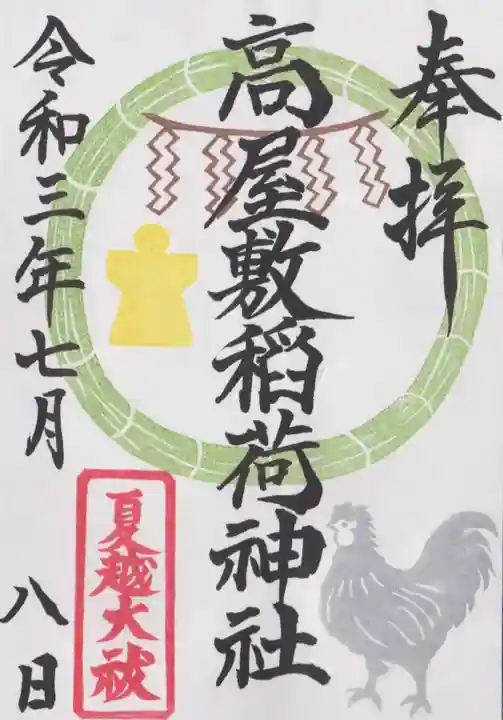 奉拝
高屋敷稲荷神社
令和三年七月
八日
夏越大祓